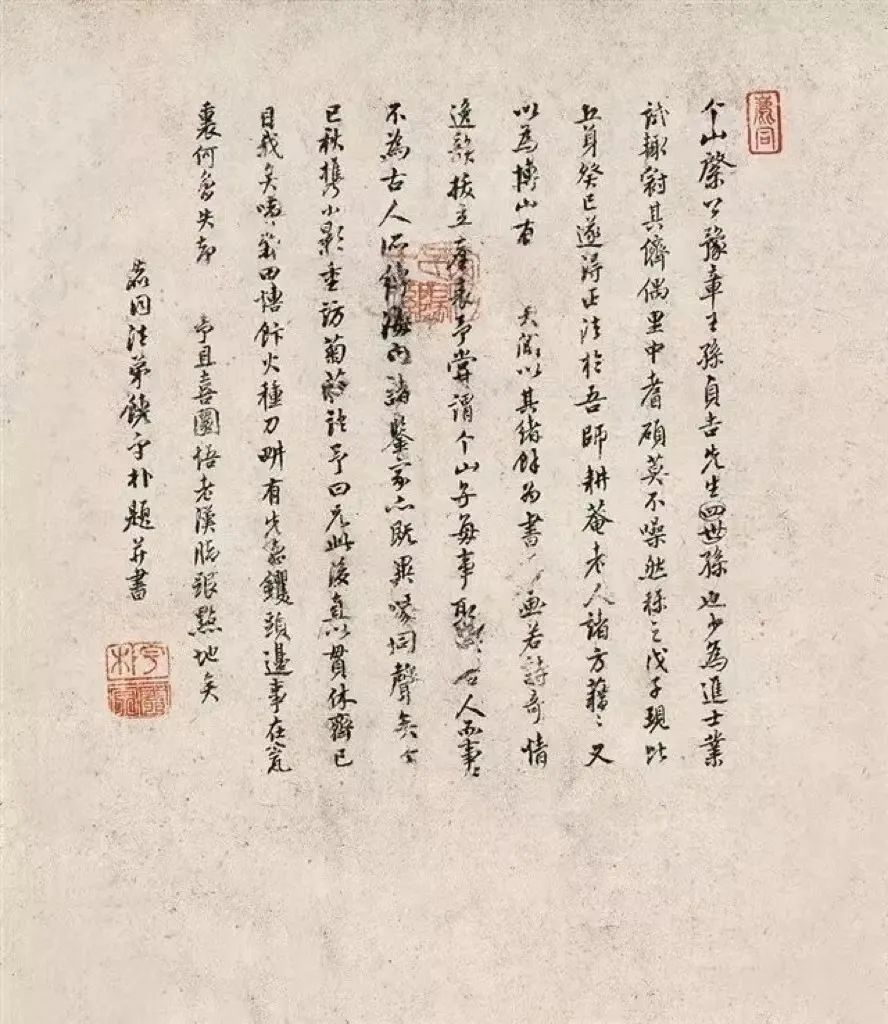 个山綮公豫章王孫貞吉先生四世孫也少為進士業
試輒冠其儕偶里中耆碩莫不噪然稱之戊子現比
丘身癸巳遂得正法於吾師耕菴老人諸方藉〻又
以為博山有 矣間以其緒餘為書 畫若詩奇情
逸韻拔立塵表予嘗謂个山子每事取 古人而事〻
不為古人所縛海內諸鑒家亦既異喙同聲矣
巳秋攜小影重訪菊莊語予曰兄此後直以貫休齊已
目我矣咦 火種刀畊有先德钁頭邊事在瓮
裏何曾失却 予且喜圜悟老漢脚跟點地矣
法弟饒宇朴題并書
宇朴